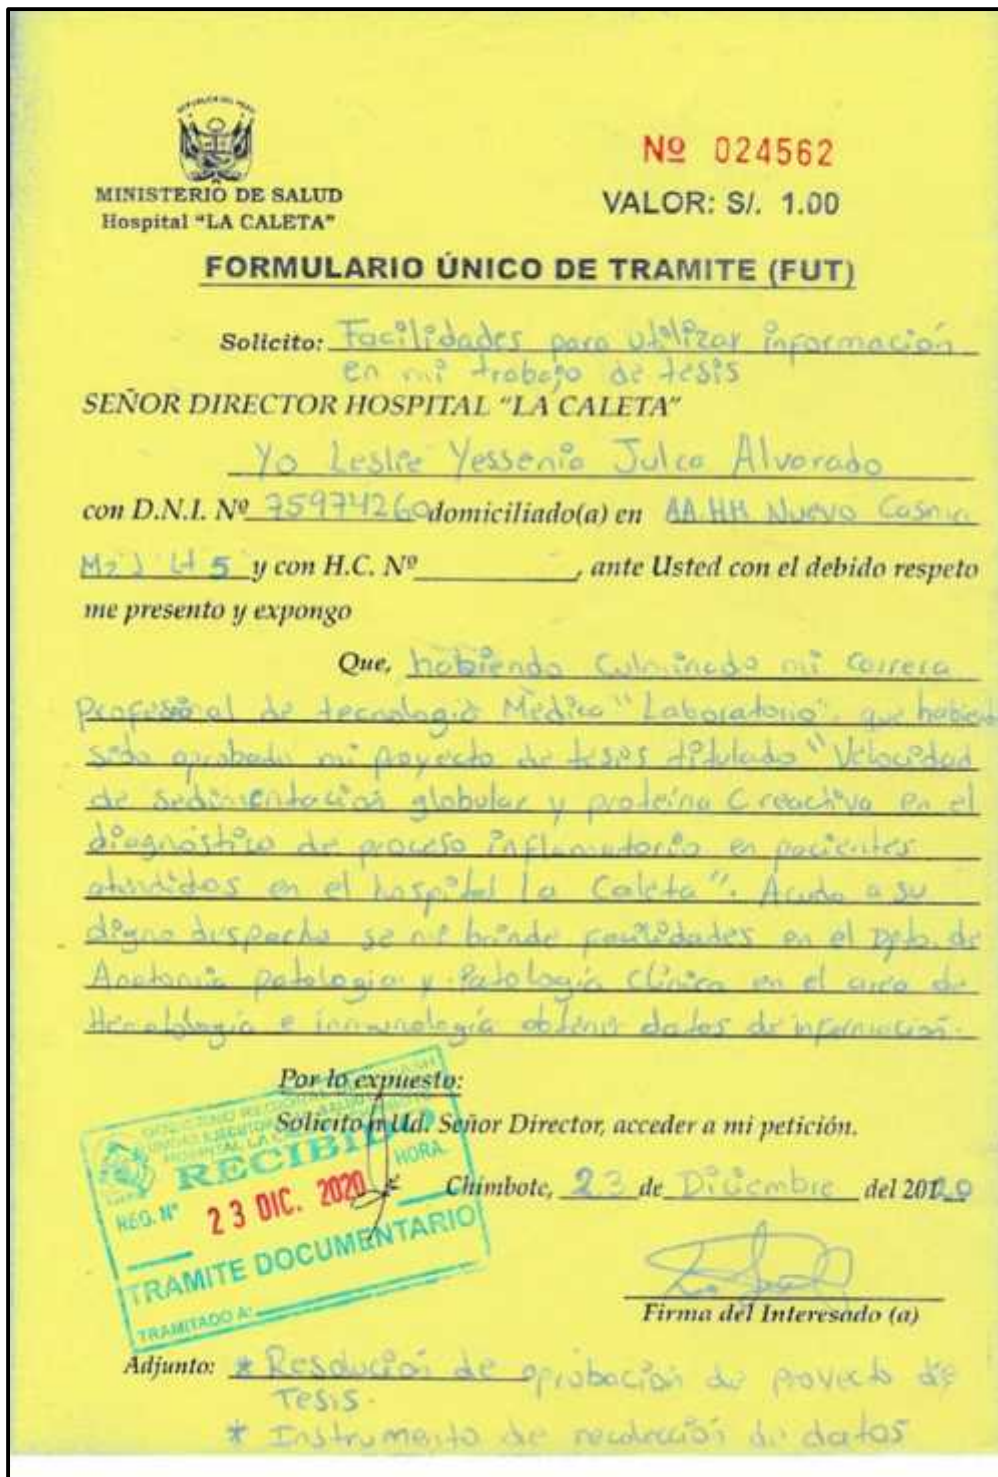 REPUBLICA DEL PERU
MINISTERIO DE SALUD
Hospital "LA CALETA"
Nº 024562
VALOR: S/. 1.00
FORMULARIO ÚNICO DE TRAMITE (FUT)
Solicito: Facilidades para utilizar información
en mi trabajo de tesis
SEÑOR DIRECTOR HOSPITAL "LA CALETA"
Yo Leslie Yessenia Julca Alvarado
con D.N.I. Nº 75974260 domiciliado(a) en AA.HH Nuevo
Mz J Lt 5 y con H.C. Nº , ante Usted con el debido respeto
me presento y expongo
Que, habiendo Culminado mi carrera
profesional de tecnología Médica "Laboratorio", que habiendo
sido aprobado mi proyecto de tesis titulado "Velocidad
de sedimentación globular y proteína C reactiva en el
diagnóstico de proceso inflamatorio en pacientes
atendidos en el hospital la Caleta". Acudo a su
digno despacho se me brinde facilidades en el Dpto. de
Anatomía patología y Patología Clínica en el area de
Hematología e inmunología obtener datos de información.
Por lo expuesto:
Solicito a Ud. Señor Director, acceder a mi petición.
HOSPITAL LA CALETA
RECIBIDO
HORA.
REG. Nº 23 DIC. 2020
TRAMITE DOCUMENTARIO
TRAMITADO A:
Chimbote, 23 de Diciembre del 2020
Firma del Interesado (a)
Adjunto: * Resolución de aprobación de proyecto de
Tesis.
* Instrumento de recolección de datos